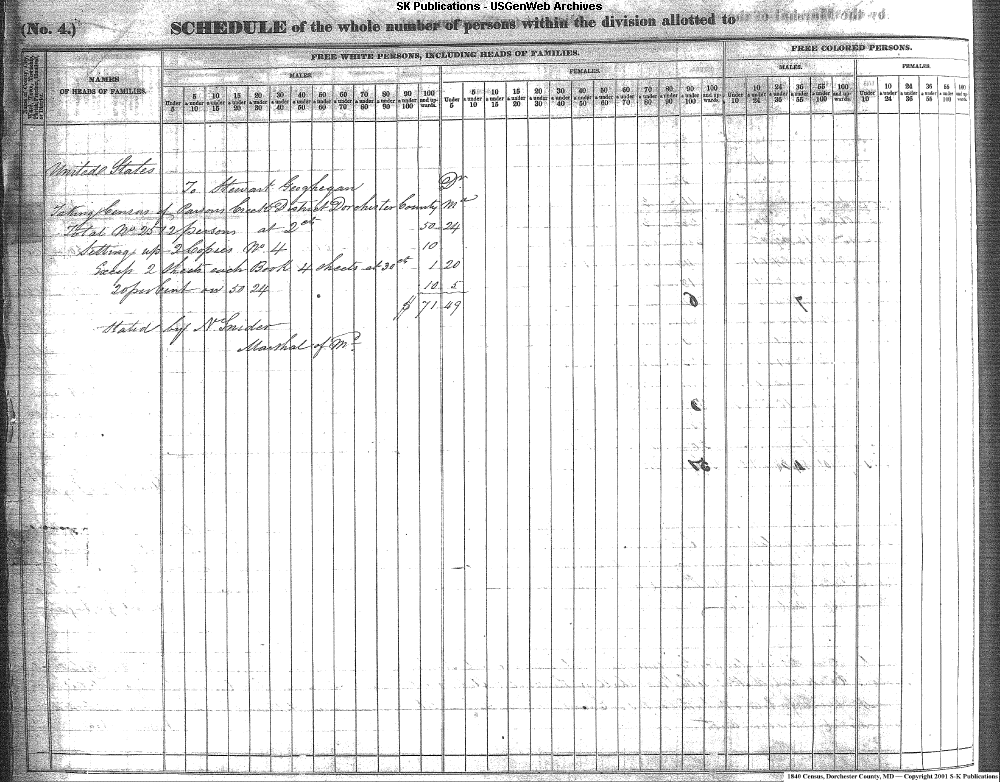 SK Publications - USGenWeb Archives
(No. 4.) SCHEDULE of the whole number of persons within the division allotted to
FREE WHITE PERSONS, INCLUDING HEADS OF FAMILIES. FREE COLORED PERSONS.
NAMES OF HEADS OF FAMILIES.
MALES. FEMALES. MALES. FEMALES.
Under 5 5 & under 10 10 & under 15 15 & under 20 20 & under 30 30 & under 40 40 & under 50 50 & under 60 60 & under 70 70 & under 80 80 & under 90 90 & under 100 100 and upwards. Under 5 5 & under 10 10 & under 15 15 & under 20 20 & under 30 30 & under 40 40 & under 50 50 & under 60 60 & under 70 70 & under 80 80 & under 90 90 & under 100 100 and upwards. Under 10 10 & under 24 24 & under 36 36 & under 55 55 & under 100 100 and upwards. Under 10 10 & under 24 24 & under 36 36 & under 55 55 & under 100 100 and upwards.
United States
To Stewart Geoghegan Dr
Taking Census of Parsons Creek District Dorchester County Md
Total No 2512 persons at 2ct 50 24
Setting up 2 Copies No 4 10
Excess 2 Sheets each Book 4 sheets at 30ct 1 20
20 per Cent on 50 24 10 5
$ 71 49
Stated by N. Snider
Marshal of Md.
1840 Census, Dorchester County, MD — Copyright 2001 S-K Publications